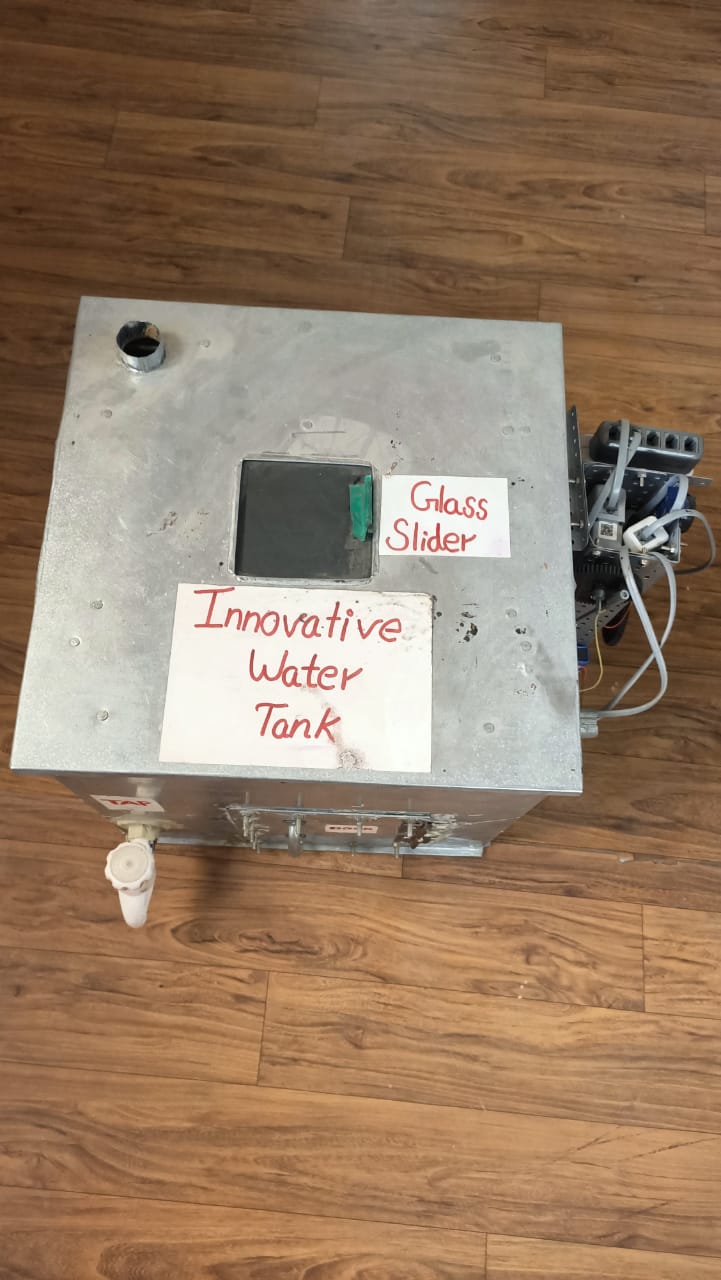 Glass
Slider
Innovative
Water
Tank
TAP